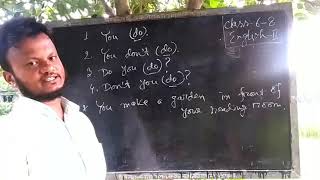 1. You (do).
2. You don't (do).
3. Do you (do)?
4. Don't you (do)?
You make a garden in front of
your reading room.
Class-6-8
English-II